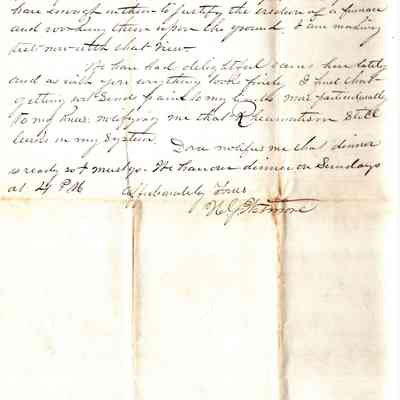 have enough in them to justify the erection of a furnace
and working them upon the ground. I am making
test now with that view.
We have had delightful rains here lately
and as with you everything look finely. I find that
getting wet send pains to my limbs more particularally
to my knees notifying me that Rheumatism still
lurks in my System.
Dora notifies me that dinner
is ready so I must go. We have our dinner on Sundays
at 4 P.M. Affectionately Yours